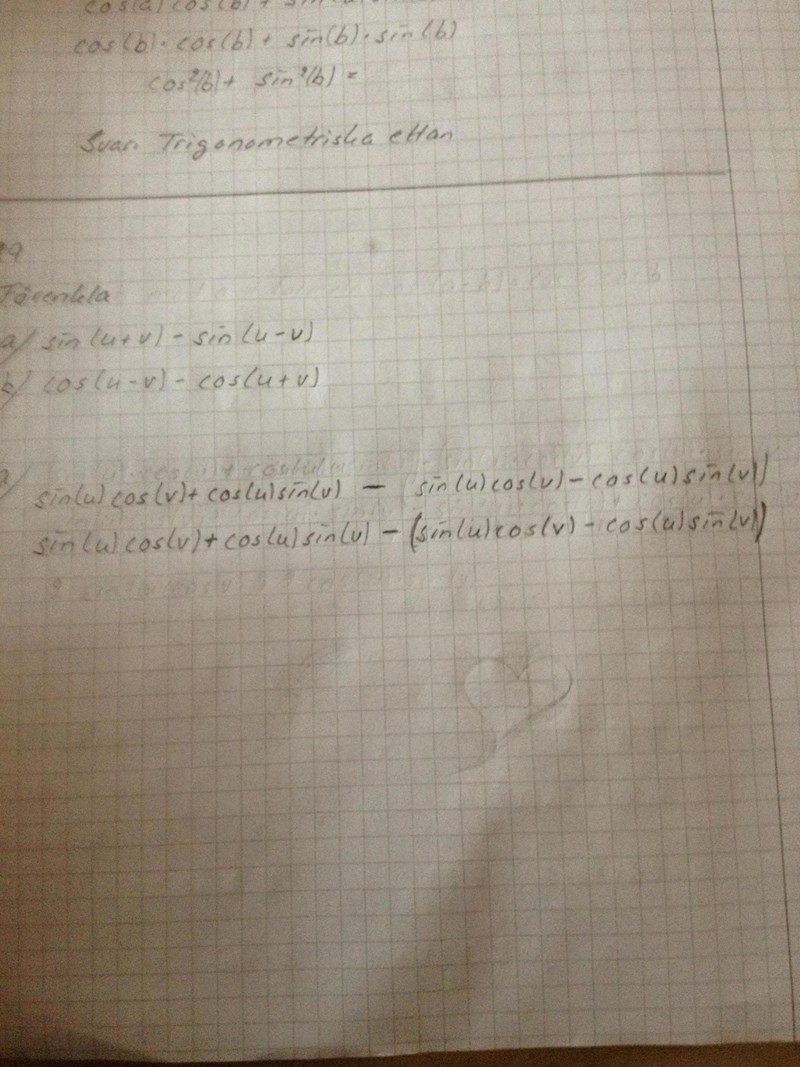 cos(a) cos(b) +
cos(b) · cos(b) + sin(b) · sin(b)
cos²(b) + sin²(b) =
Svar. Trigonometriska ettan
Förenkla
a/ sin(u+v) - sin(u-v)
b/ cos(u-v) - cos(u+v)
a/
sin(u) cos(v) + cos(u) sin(v) - (sin(u) cos(v) - cos(u) sin(v))
sin(u) cos(v) + cos(u) sin(v) - (sin(u) cos(v) - cos(u) sin(v))